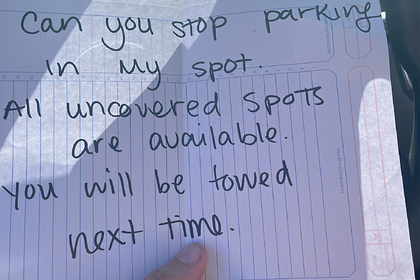 Can you stop parking
in my spot.
All uncovered spots
are available.
you will be towed
next time.